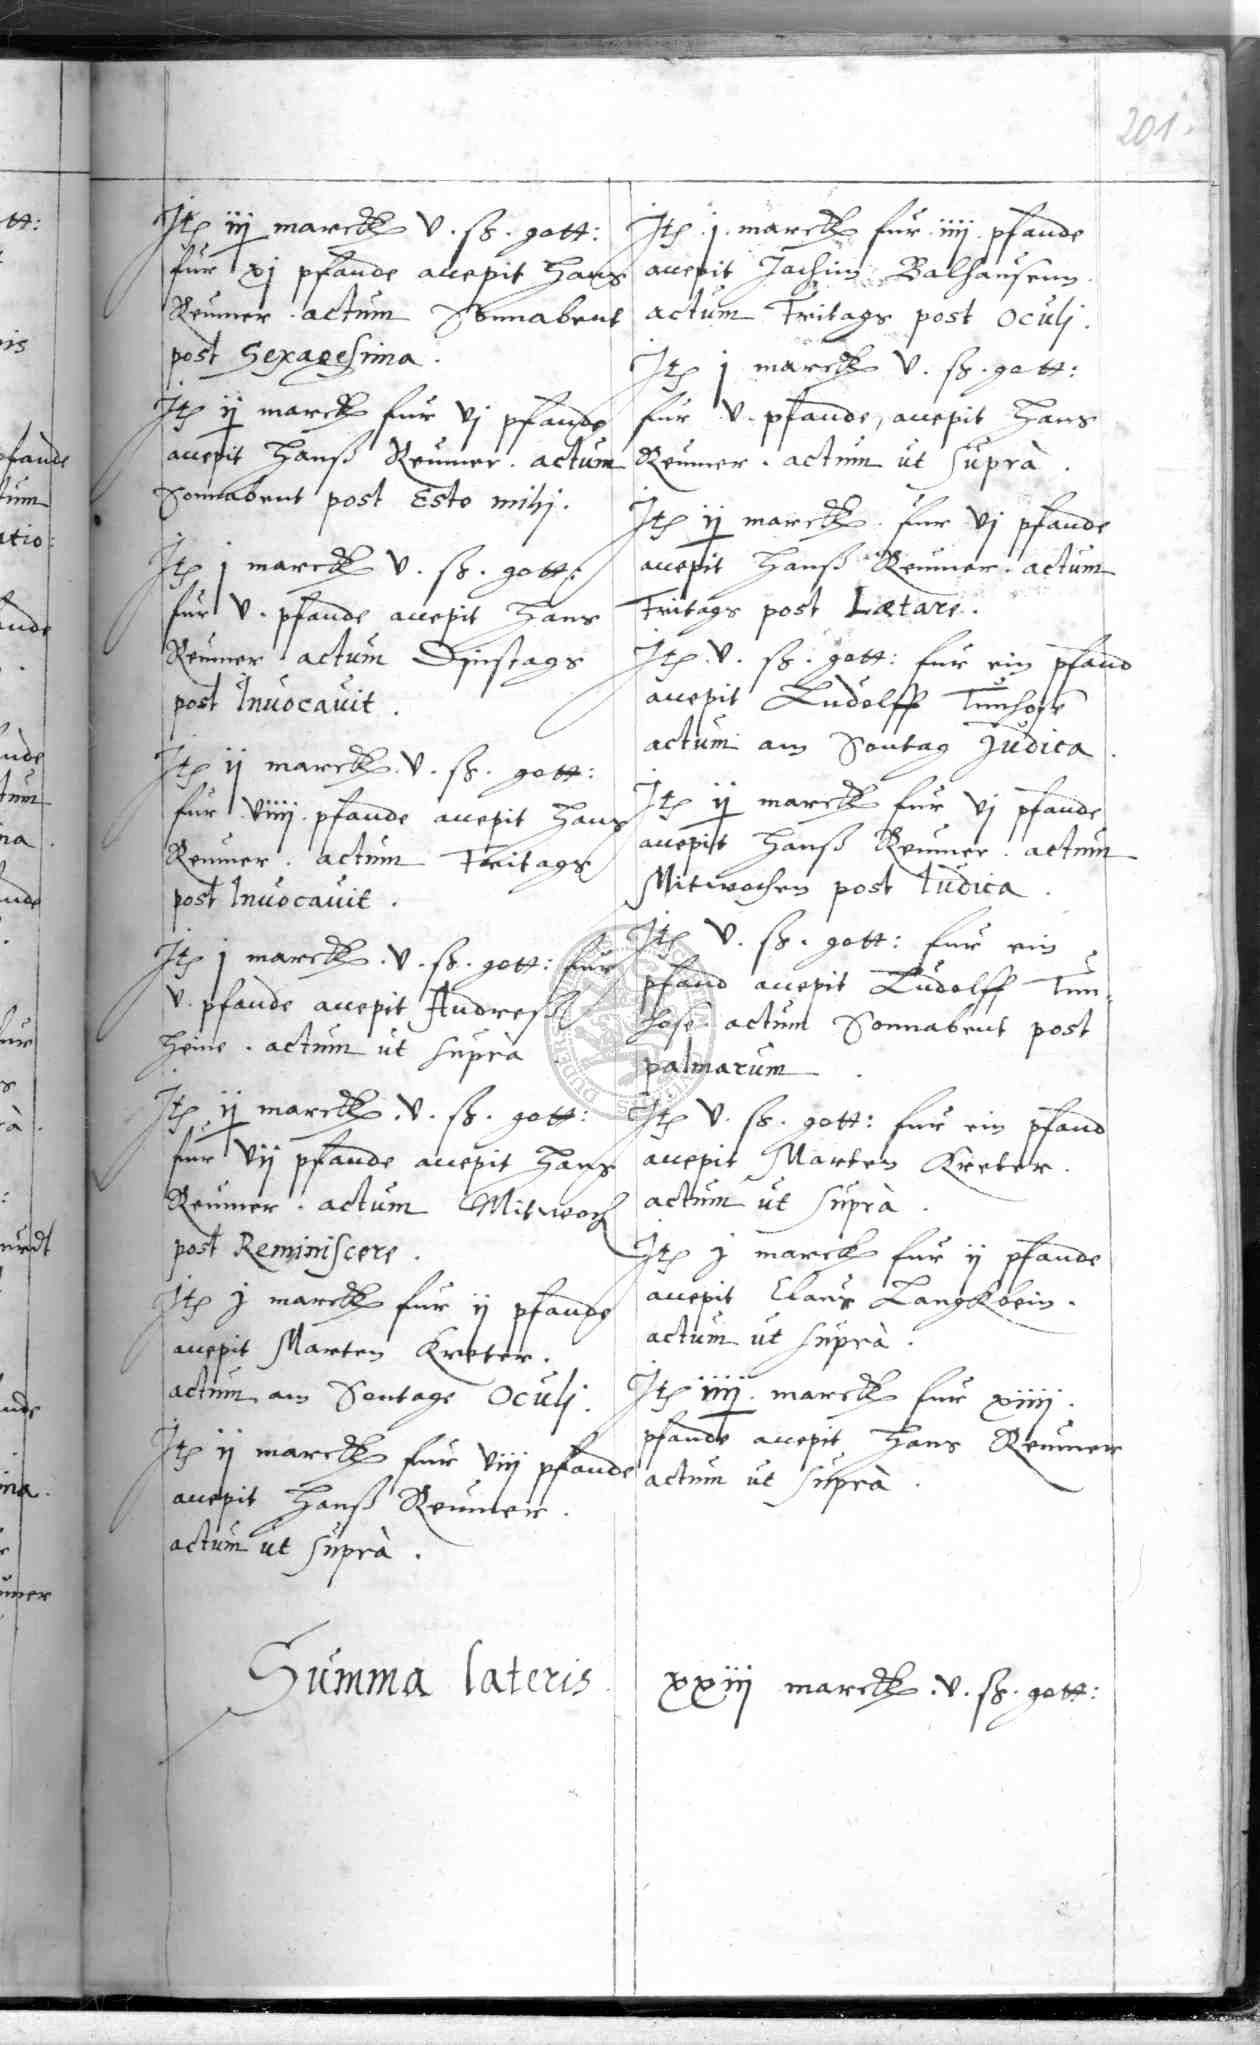 201.
Jtem iij marck v. ß. gott:
fur xj pfande accepit Hans
Reumer. actum Sonnabent
post Sexagesima.
Jtem ij marck fur vj pfande
accepit Hanß Reumer. actum
Sonnabent post Esto mihi.
Jtem j marck v. ß. gott:
fur v. pfande accepit Hans
Reumer actum Dinstags
post Invocavit.
Jtem ij marck. v. ß. gott:
fur viiij. pfande accepit Hans
Reumer. actum Freitags
post Invocavit.
Jtem j marck. v. ß. gott: fur
v. pfande accepit Andreß
Heine. actum ut supra
Jtem ij marck. v. ß. gott:
fur vij pfande accepit Hans
Reumer. actum Mitwoch
post Reminiscere.
Jtem j marck fur ij pfande
accepit Marten Kreter.
actum am Sontage Oculj.
Jtem ij marck fur viij pfande
accepit Hanß Reumer.
actum ut suprà.
Jtem. j. marck fur. iiij. pfande
accepit Jochim Balhausenn.
actum Fritags post Oculj.
Jtem j marck v. ß. gott:
fur v. pfande, accepit Hans
Reumer. actum ut suprà.
Jtem ij marck. fur vj pfande
accepit Hanß Reumer. actum
Fritags post Lætare.
Jtem. v. ß. gott: fur ein pfand
accepit Ludolff Tunhose
actum am Sontag Judica.
Jtem ij marck fur vj pfande
accepit Hanß Reumer. actum
Mitwochen post Iudica.
Jtem v. ß. gott: fur ein
pfand accepit Ludolff Tun-
hose. actum Sonnabent post
palmarum.
Jtem v. ß. gott: fur ein pfand
accepit Marten Kreter.
actum ut suprà.
Jtem j marck fur ij pfande
accepit Claus Langkbein.
actum ut suprà.
Jtem iiij. marck fur xiiij.
pfande accepit Hans Reumer
actum ut suprà.
Summa lateris. xxiij marck. v. ß. gott: